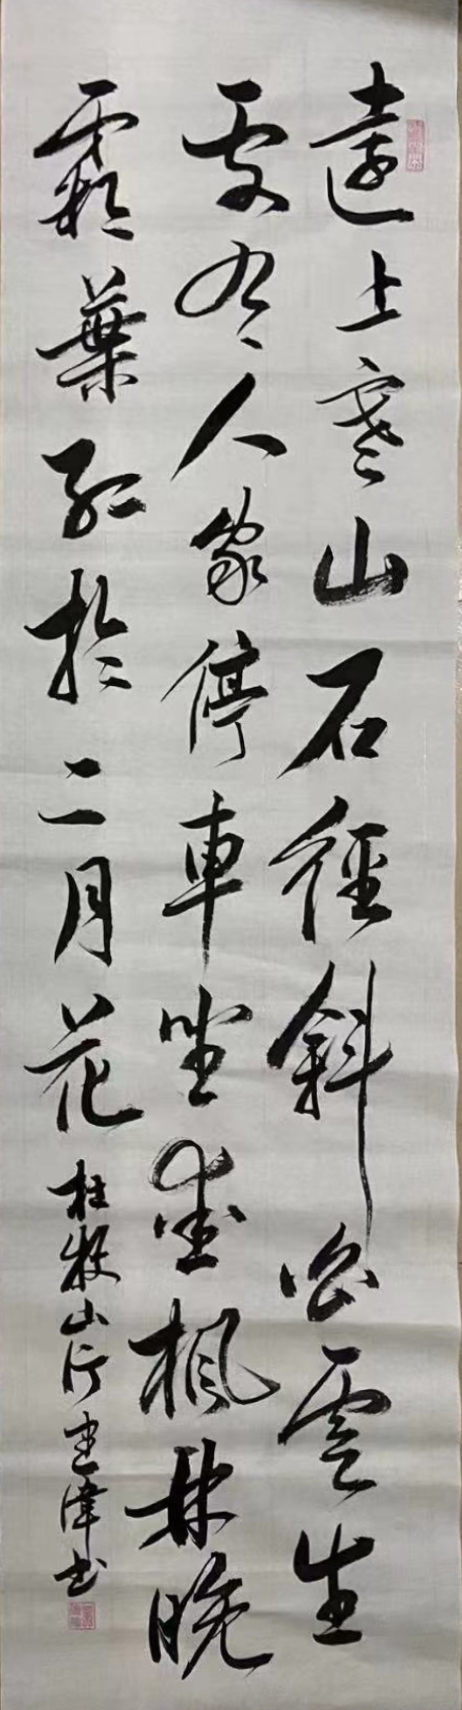 遠上寒山石徑斜白雲生
處有人家停車坐愛楓林晚
霜葉紅於二月花 杜牧山行 建偉书